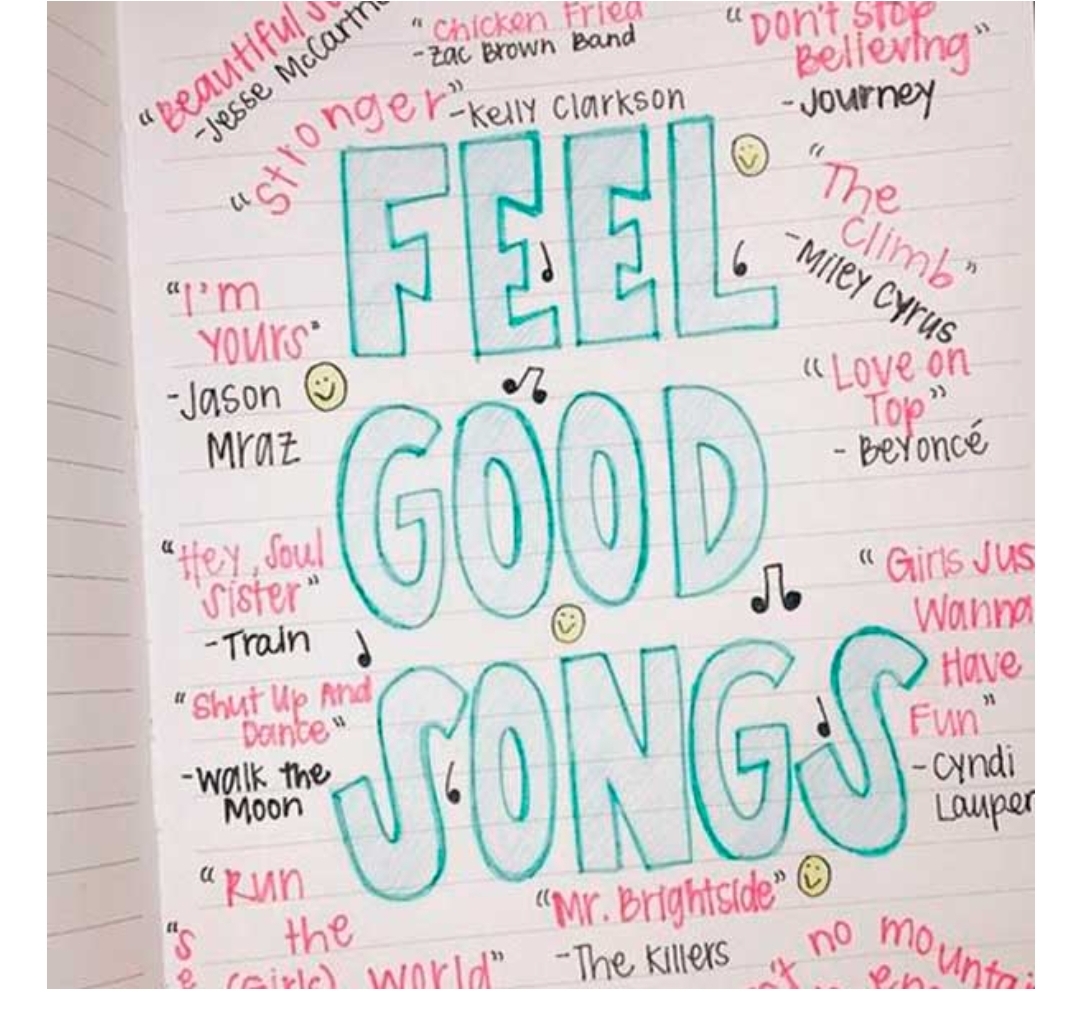 "Beautiful
-Jesse McCartn
"Chicken Fried
-Zac Brown Band
"Don't Stop
Believing"
-Journey
"Stronger"
-Kelly Clarkson
FEEL
"The
Climb"
-Miley Cyrus
"I'm
Yours"
-Jason
Mraz
"Love on
Top"
- Beyoncé
GOOD
"Hey, Soul
Sister"
-Train
"Girls Jus
Wanna
Have
Fun"
-Cyndi
Lauper
"Shut Up And
Dance"
-Walk the
Moon
SONGS
"Run
the
(Girls) World"
"Mr. Brightside"
-The Killers
no mountai